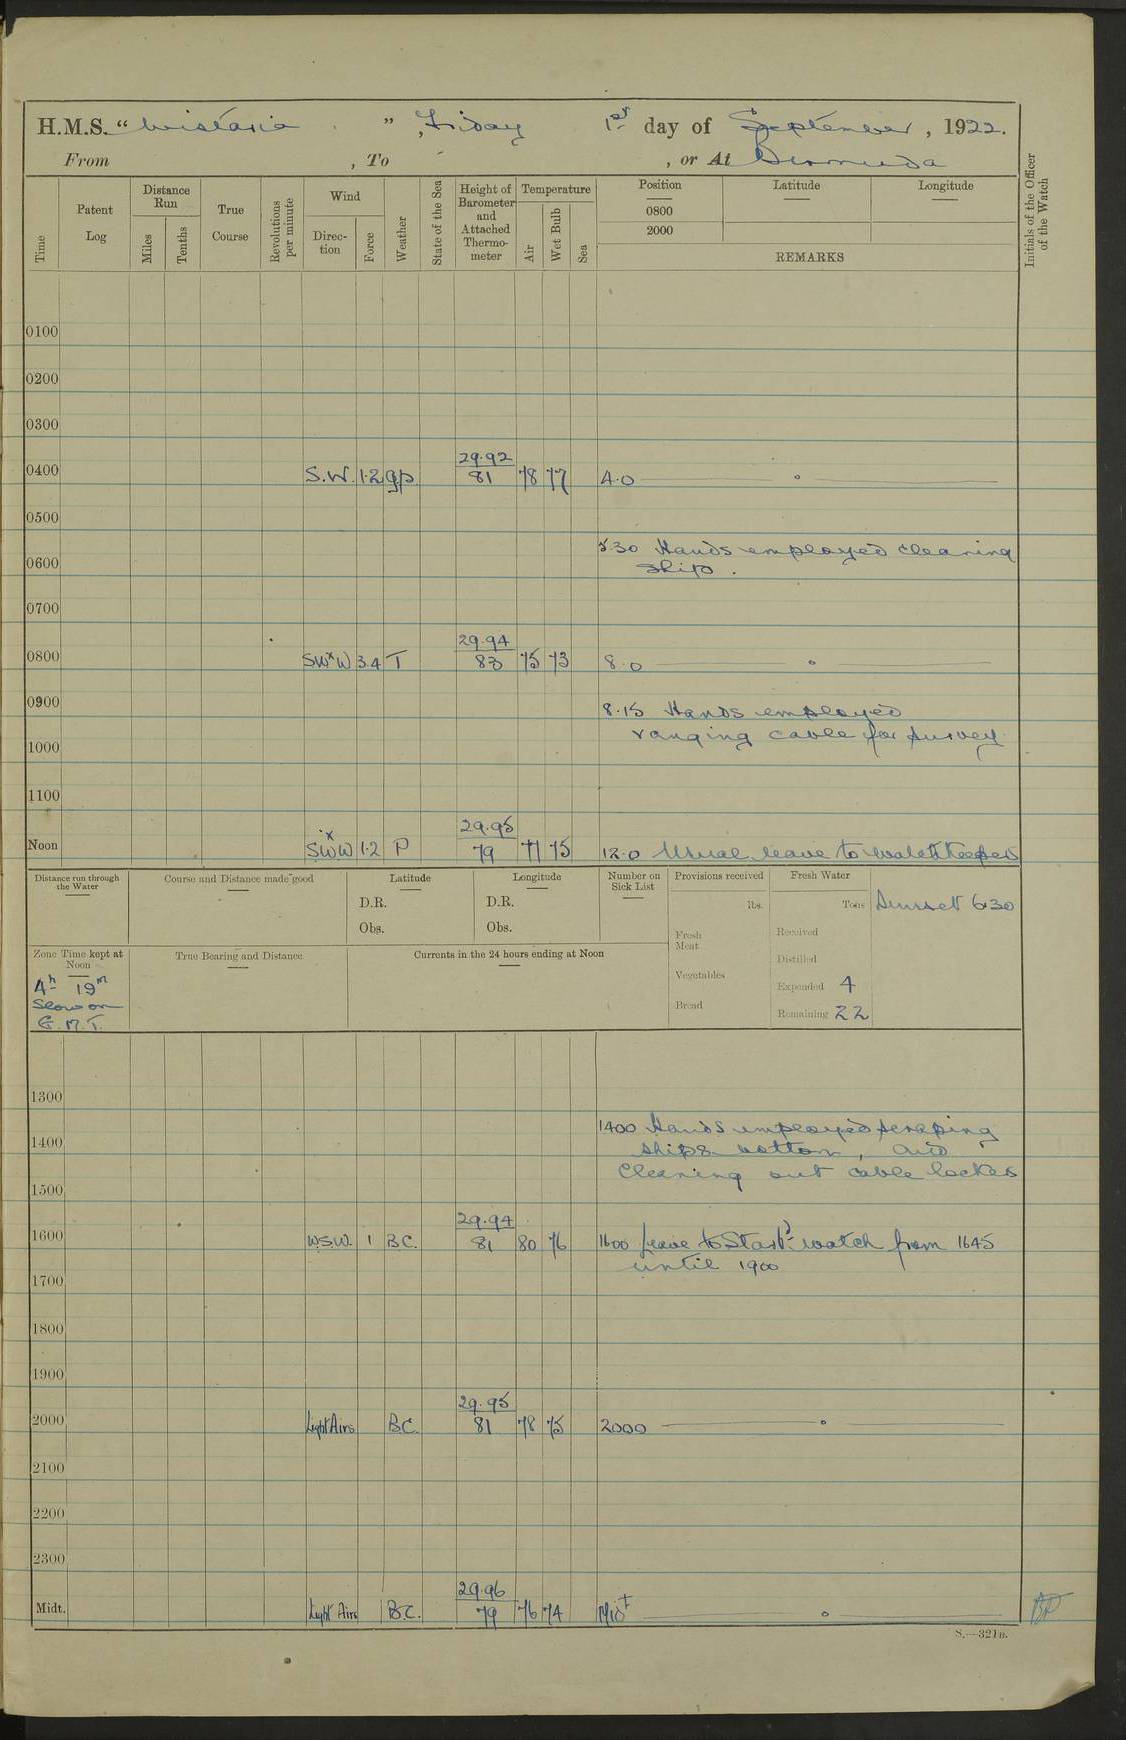 H.M.S. "Wistaria", Friday 1st day of September, 1922.
From , To , or At Bermuda
Time
Patent Log
Distance Run
Miles
Tenths
True Course
Revolutions per minute
Wind
Direc-tion
Force
Weather
State of the Sea
Height of Barometer and Attached Thermo-meter
Temperature
Air
Wet Bulb
Sea
Position
0800
2000
Latitude
Longitude
REMARKS
Initials of the Officer of the Watch
0100
0200
0300
29.92
0400 S.W. 1.2 g.p. 81 78 77 4.0
0500
5.30 Hands employed cleaning
0600 ship.
0700
29.94
0800 SWxW 3.4 T 83 75 73 8.0
0900 8.15 Hands employed
ranging cable for survey
1000
1100
29.95
Noon SWxW 1.2 P 79 77 75 12.0 Usual leave to watchkeepers
Distance run through the Water
Course and Distance made good
Latitude
D.R.
Obs.
Longitude
D.R.
Obs.
Number on Sick List
Provisions received
lbs.
Fresh Meat
Vegetables
Bread
Fresh Water
Tons
Received
Distilled
Expended 4
Remaining 22
Sunset 6.30
Zone Time kept at Noon
4h 19m
Slow on
G.M.T.
True Bearing and Distance
Currents in the 24 hours ending at Noon
1300
1400 Hands employed scraping
1400 ships bottom, and
Cleaning out cable locker
1500
29.94
1600 W.S.W. 1 B.C. 81 80 76 1600 Leave to Starbd watch from 1645
until 1900
1700
1800
1900
29.95
2000 Light Airs B.C. 81 78 75 2000
2100
2200
2300
29.96
Midt. Light Airs B.C. 79 76 74 Midt
S.—321B.